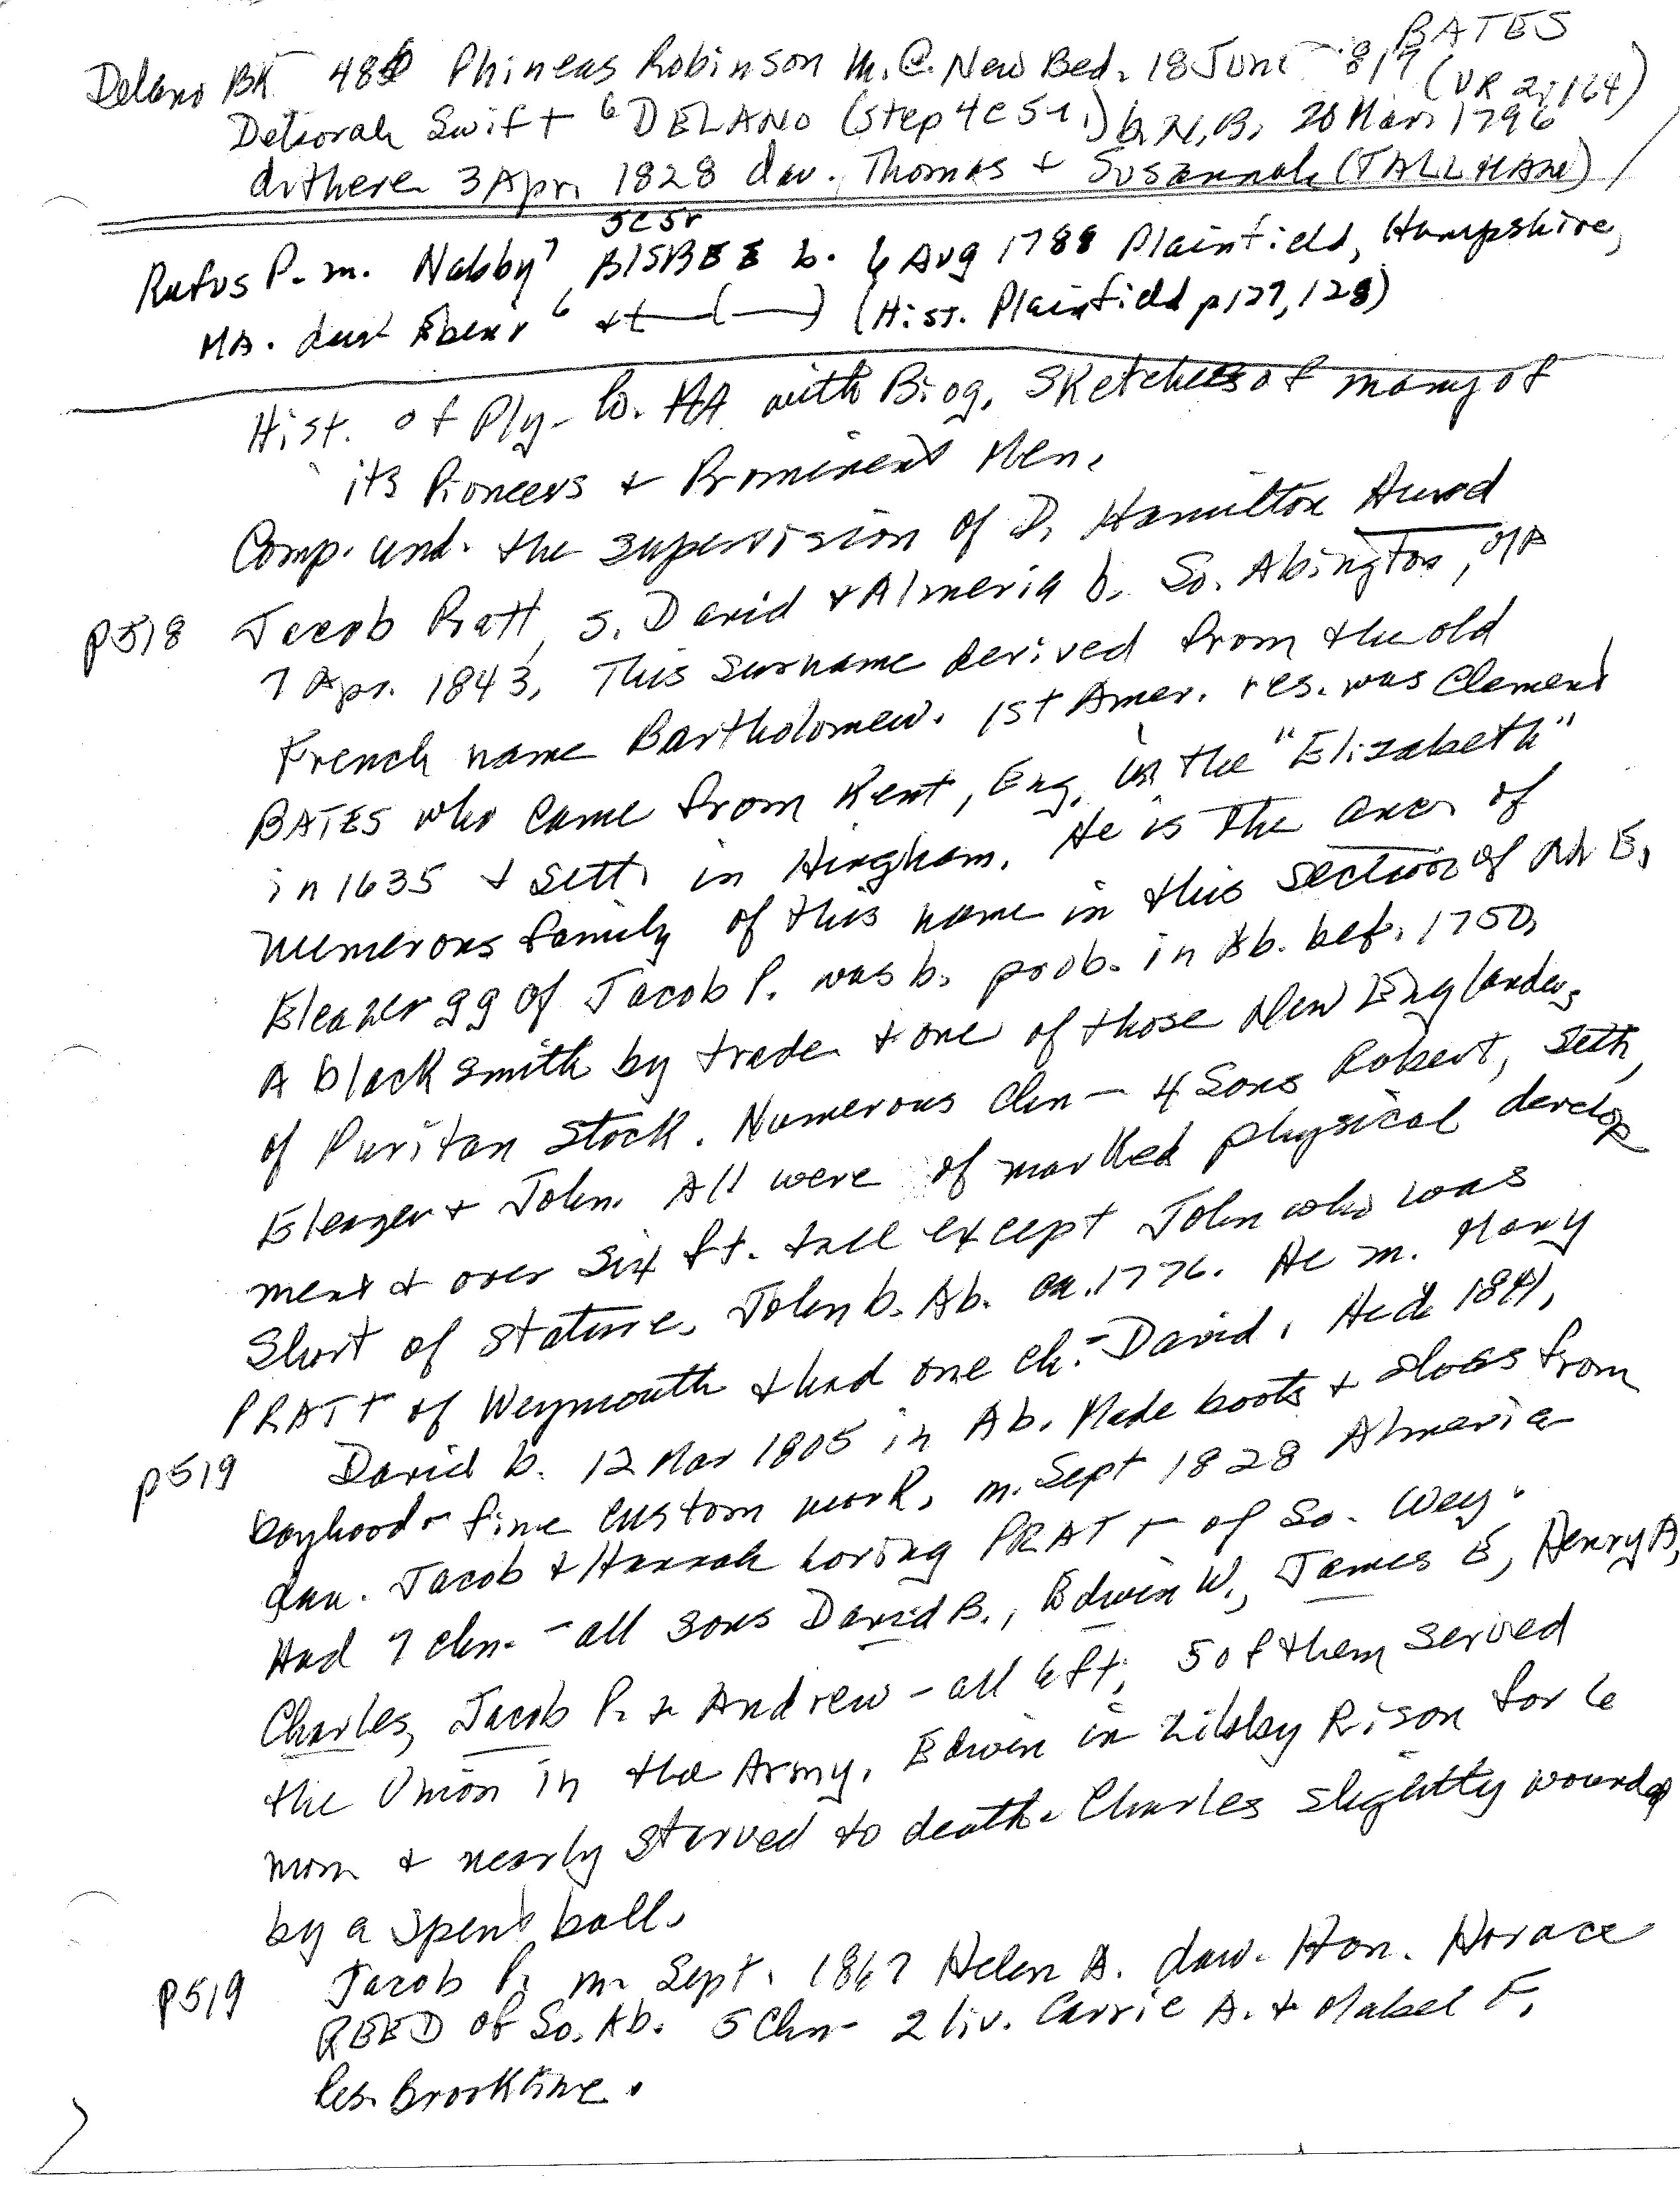 BATES
Delano BK 48 Phineas Robinson m. @ New Bed. 18 June 1817 (VR 2:164)
Deborah Swift 6 DELANO (step 4 c 5 1.) b. N.B. 20 Mar. 1796
d. there 3 Apr. 1828 dau. Thomas + Susannah (TALLMAN)
Rufus P. m. Nabby 7 BISBEE b. 6 Aug 1788 Plainfield, Hampshire,
MA. dau Ebenr 6 + (—) (Hist. Plainfield p 127, 128)
Hist. of Ply- Co. MA with Biog. Sketches of many of
its Pioneers + Prominent Men.
Comp. und. the supervision of D. Hamilton Hurd
p518 Jacob Pratt, s. David + Almeria b. So. Abington, MA
7 Apr. 1843. This surname derived from the old
French name Bartholomew. 1st Amer. res. was Clement
BATES who came from Kent, Eng. in the "Elizabeth"
in 1635 + sett. in Hingham. He is the anc. of
numerous family of this name in this section of N.E.
Eleazer gg of Jacob P. was b. prob. in Ab. bef. 1750,
A blacksmith by trade + one of those New Englanders
of Puritan stock. Numerous chn - 4 sons Robert, Seth,
Eleazer + John. All were of marked physical develop
ment + over six ft. tall except John who was
short of stature. John b. Ab. ca. 1776. He m. Mary
PRATT of Weymouth + had one ch. - David. He d. 1841.
p519 David b. 12 Mar 1805 in Ab. Made boots + shoes from
boyhood - fine custom work. m. Sept 1828 Almeria
dau. Jacob + Hannah Loring PRATT of So. Wey.
Had 7 chn. - all sons David B., Edwin W., James E, Henry A,
Charles, Jacob P. + Andrew - all 6 ft. 5 of them served
the Union in the Army. Edwin in Libby Rison for 6
mon + nearly starved to death. Charles slightly wounded
by a spent ball.
p519 Jacob P. m. Sept. 1867 Helen A. dau. Hon. Horace
REED of So. Ab. 5 Chn - 2 liv. Carrie A. + Mabel F.
Res. Brookline.